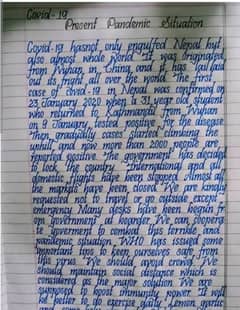 Covid-19
Present Pandemic Situation
Covid-19 hasnot only engulfed Nepal but
also almost whole world. It was originated
from Wuhan in China and it has laid
out its fright all over the world. The first
case of covid-19 in Nepal was confirmed on
23 January 2020 when a 31 year old student
who returned to Kathmandu from Wuhan
on 9 January, tested positive for the disease
Then, gradually cases started climbing the
uphill and now more than 2000 people are
reported positive. The government has decided
to lock the country. International and all
domestic flights have been stopped. Almost all
the markets have been closed. We are kindly
requested not to travel or go outside except
emergency. Many desks have been
government at We can cooperate
government to combat this terrible and
pandemic situation. WHO has issued some
important tips to keep ourselves safe from
this virus. We should avoid crowd. We
should maintain social distance which is
considered as the major solution. We are
supposed to boost immunity power. It will
be better to do exercise daily. Lemon, garlic